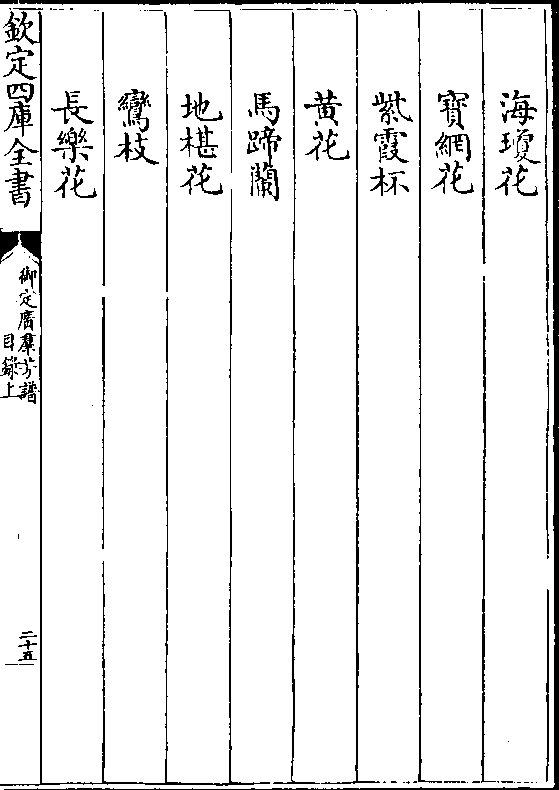 海瓊花
寶網花
紫霞杯
黃花
馬蹄蘭
地椹花
鸞枝
長樂花
欽定四庫全書
御定廣羣芳譜
目録上
二十五